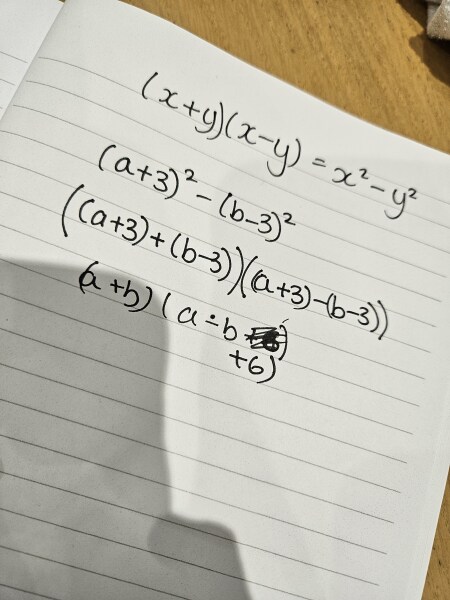 (x+y)(x-y) = x² - y²
(a+3)² - (b-3)²
((a+3)+(b-3))((a+3)-(b-3))
(a+b)(a-b
+6)